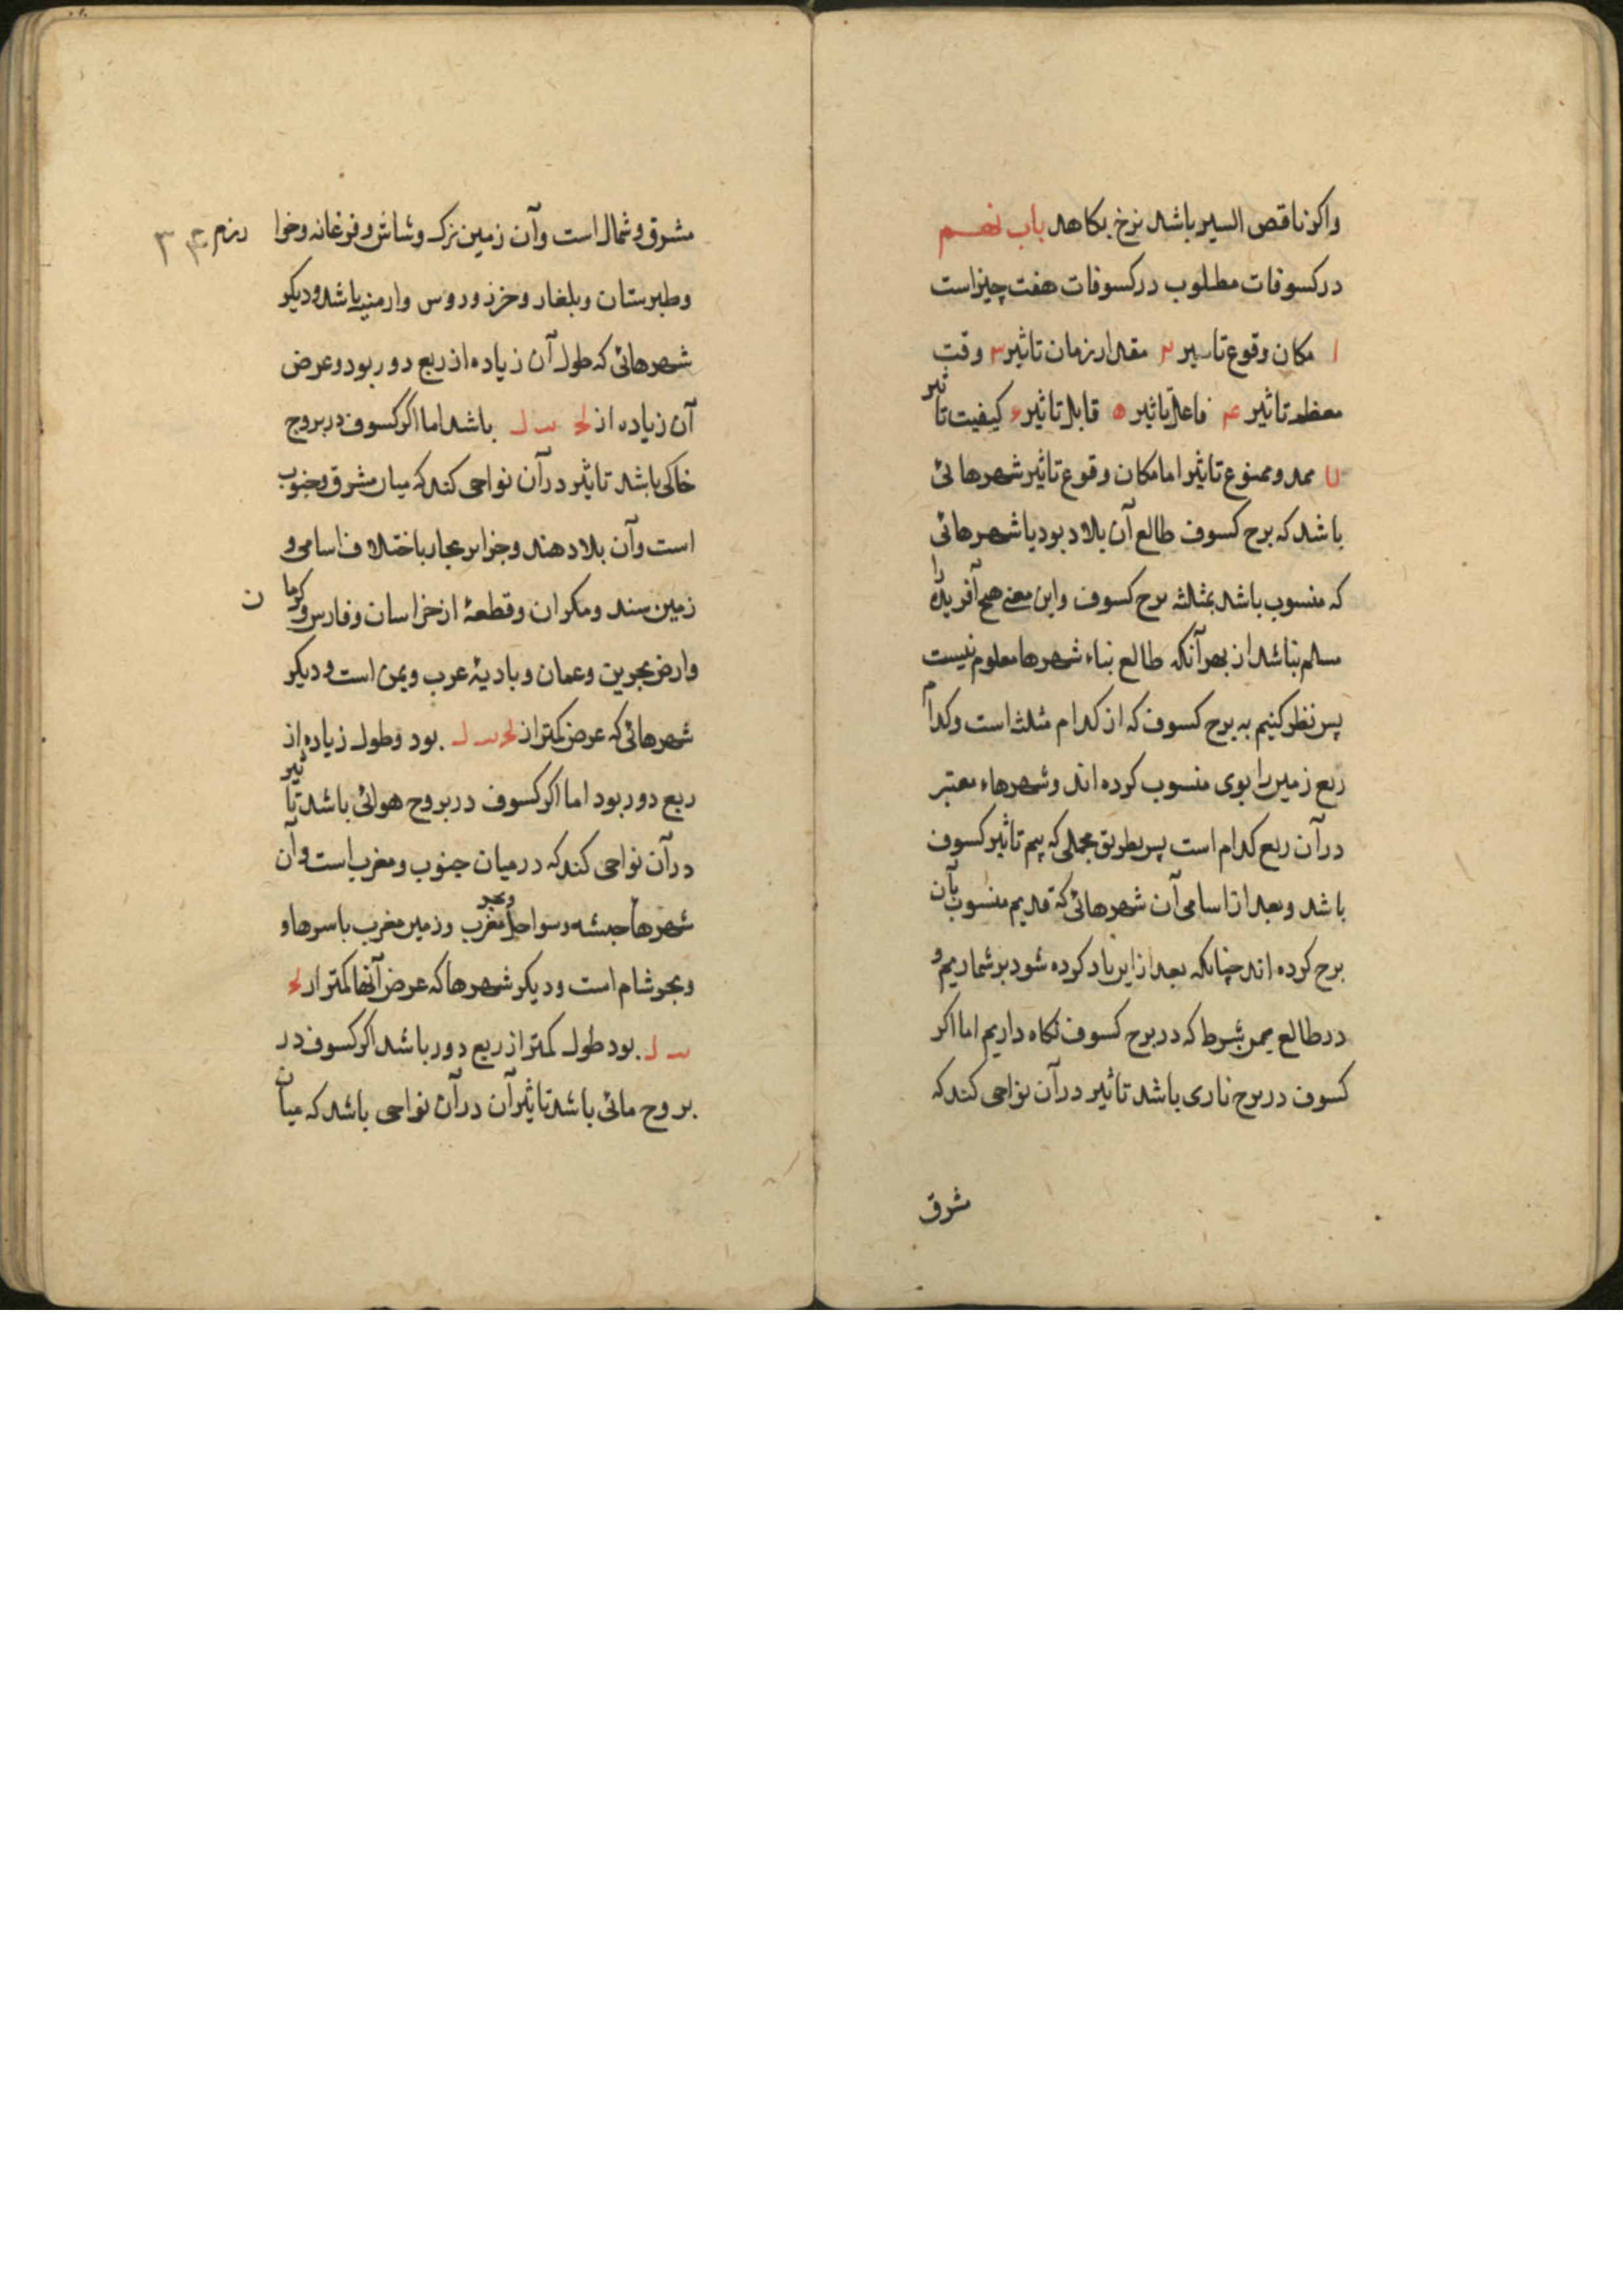 واکر ناقص السیر باشد نرخ بکاهد باب نهم
در کسوفات مطلوب در کسوفات هفت چیز است
۱ مکان وقوع تاثیر ۲ مقدار زمان تاثیر ۳ وقت
معظم تاثیر ۴ فاعل تاثیر ۵ قابل تاثیر ۶ کیفیت تاثیر
۷ ممد وممنوع تاثیر اما مکان وقوع تاثیر شهرهائی
باشد که برج کسوف طالع آن بلاد بود یا شهرهائی
که منسوب باشد بمثلثه برج کسوف واین معنی هیچ آفریده را
مسلم نباشد از بهر آنکه طالع بناء شهرها معلوم نیست
پس نظر کنیم به برج کسوف که از کدام مثلث است وکدام
ربع زمین را بوی منسوب کرده اند وشهرهاء معتبر
در آن ربع کدام است پس بطریق مجملی که بیم تاثیر کسوف
باشد وبعد از اسامی آن شهرهائی که قدیم منسوب بآن
برج کرده اند چنانکه بعد از این یاد کرده شود بر شماریم و
در طالع ممر بشرط که در برج کسوف نکاه داریم اما اکر
کسوف در برج ناری باشد تاثیر در آن نواحی کند که
مشرق
مشرق وشمال است وآن زمین ترک وشاش وفرغانه وخوا رزم ۳۳
وطبرستان وبلغار وخزر وروس وارمنیه باشد ودیکر
شهرهائی که طول آن زیاده از ربع دور بود وعرض
آن زیاده از لح ل باشد اما اکر کسوف در بروج
خاکی باشد تاثیر در آن نواحی کند که میان مشرق وجنوب
است وآن بلاد هند وجزایر بحار باختلاف اسامی و
زمین سند ومکران وقطعهٔ از خراسان وفارس وکرمان
وارض بحرین وعمان وبادیهٔ عرب ویمن است ودیکر
شهرهائی که عرض کمتر از لح ل بود وطول زیاده از
ربع دور بود اما اکر کسوف در بروج هوائی باشد تاثیر
در آن نواحی کند که در میان جنوب ومغرب است وآن
شهرها حبشه وسواحل وبحر مغرب وزمین مغرب باسرها و
وبحر شام است ودیکر شهرها که عرض آنها کمتر از لح
ل بود طول کمتر از ربع دور باشد اکر کسوف در
بروج مائی باشد تاثیر آن در آن نواحی باشد که میان